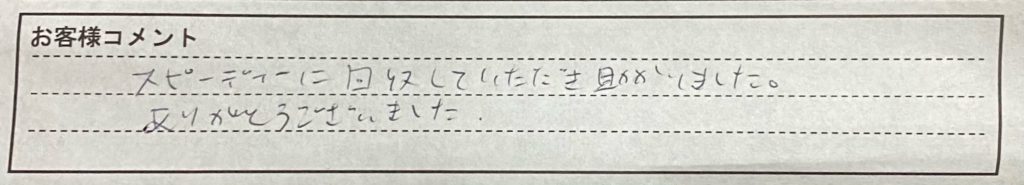 お客様コメント
スピーディーに回収していただき助かりました。
ありがとうございました.